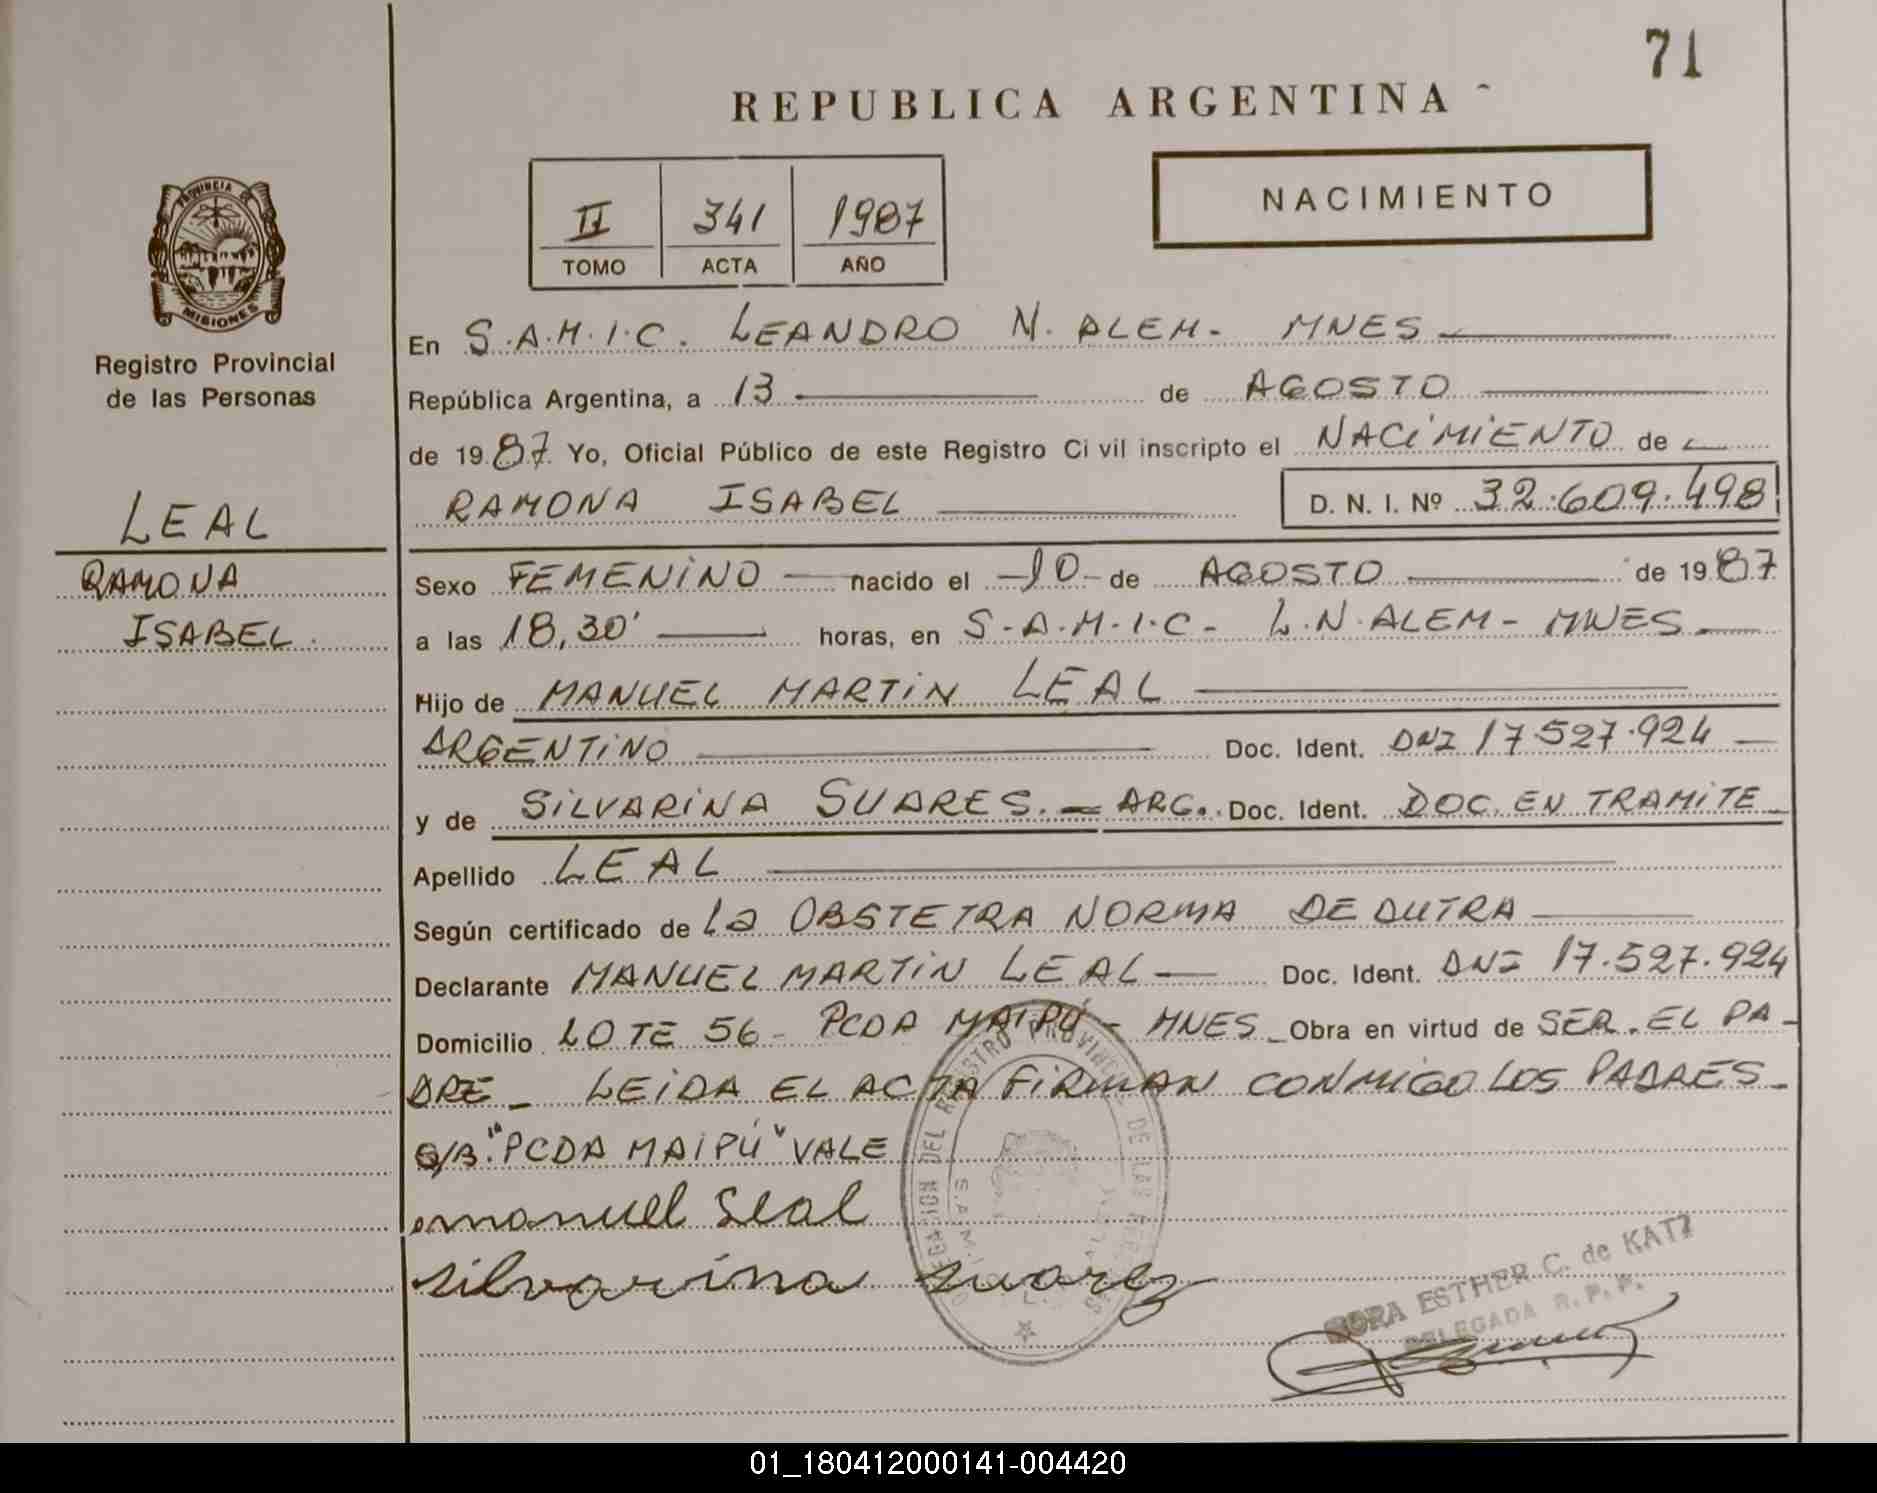 71
REPUBLICA ARGENTINA
II 341 1987
TOMO ACTA AÑO
NACIMIENTO
PROVINCIA DE
MISIONES
Registro Provincial
de las Personas
LEAL
RAMONA
ISABEL.
En S.A.M.I.C. LEANDRO N. ALEM- MNES
República Argentina, a 13 de AGOSTO
de 1987 Yo, Oficial Público de este Registro Ci vil inscripto el NACIMIENTO de
RAMONA ISABEL D. N. I. Nº 32.609.498
Sexo FEMENINO nacido el -10- de AGOSTO de 1987
a las 18,30' horas, en S-A-M-I-C- L.N.ALEM- MNES-
Hijo de MANUEL MARTIN LEAL
ARGENTINO Doc. Ident. DNI 17.527.924
y de SILVARINA SUARES.- ARG. Doc. Ident. DOC. EN TRAMITE
Apellido LEAL
Según certificado de La OBSTETRA NORMA DE DUTRA
Declarante MANUEL MARTIN LEAL Doc. Ident. DNI 17.527.924
Domicilio LOTE 56- PCDA MAIPÚ - MNES- Obra en virtud de SER. EL PA-
DRE - LEIDA EL ACTA FIRMAN CONMIGO LOS PADRES-
S/B:"PCDA MAIPÚ" VALE
manuel Leal
silvarina suarez
DELEGACION DEL REGISTRO PROVINCIAL DE LAS
S.A.M.I.
ESTHER C. de KATZ
DELEGADA R. P. P.
01_180412000141-004420